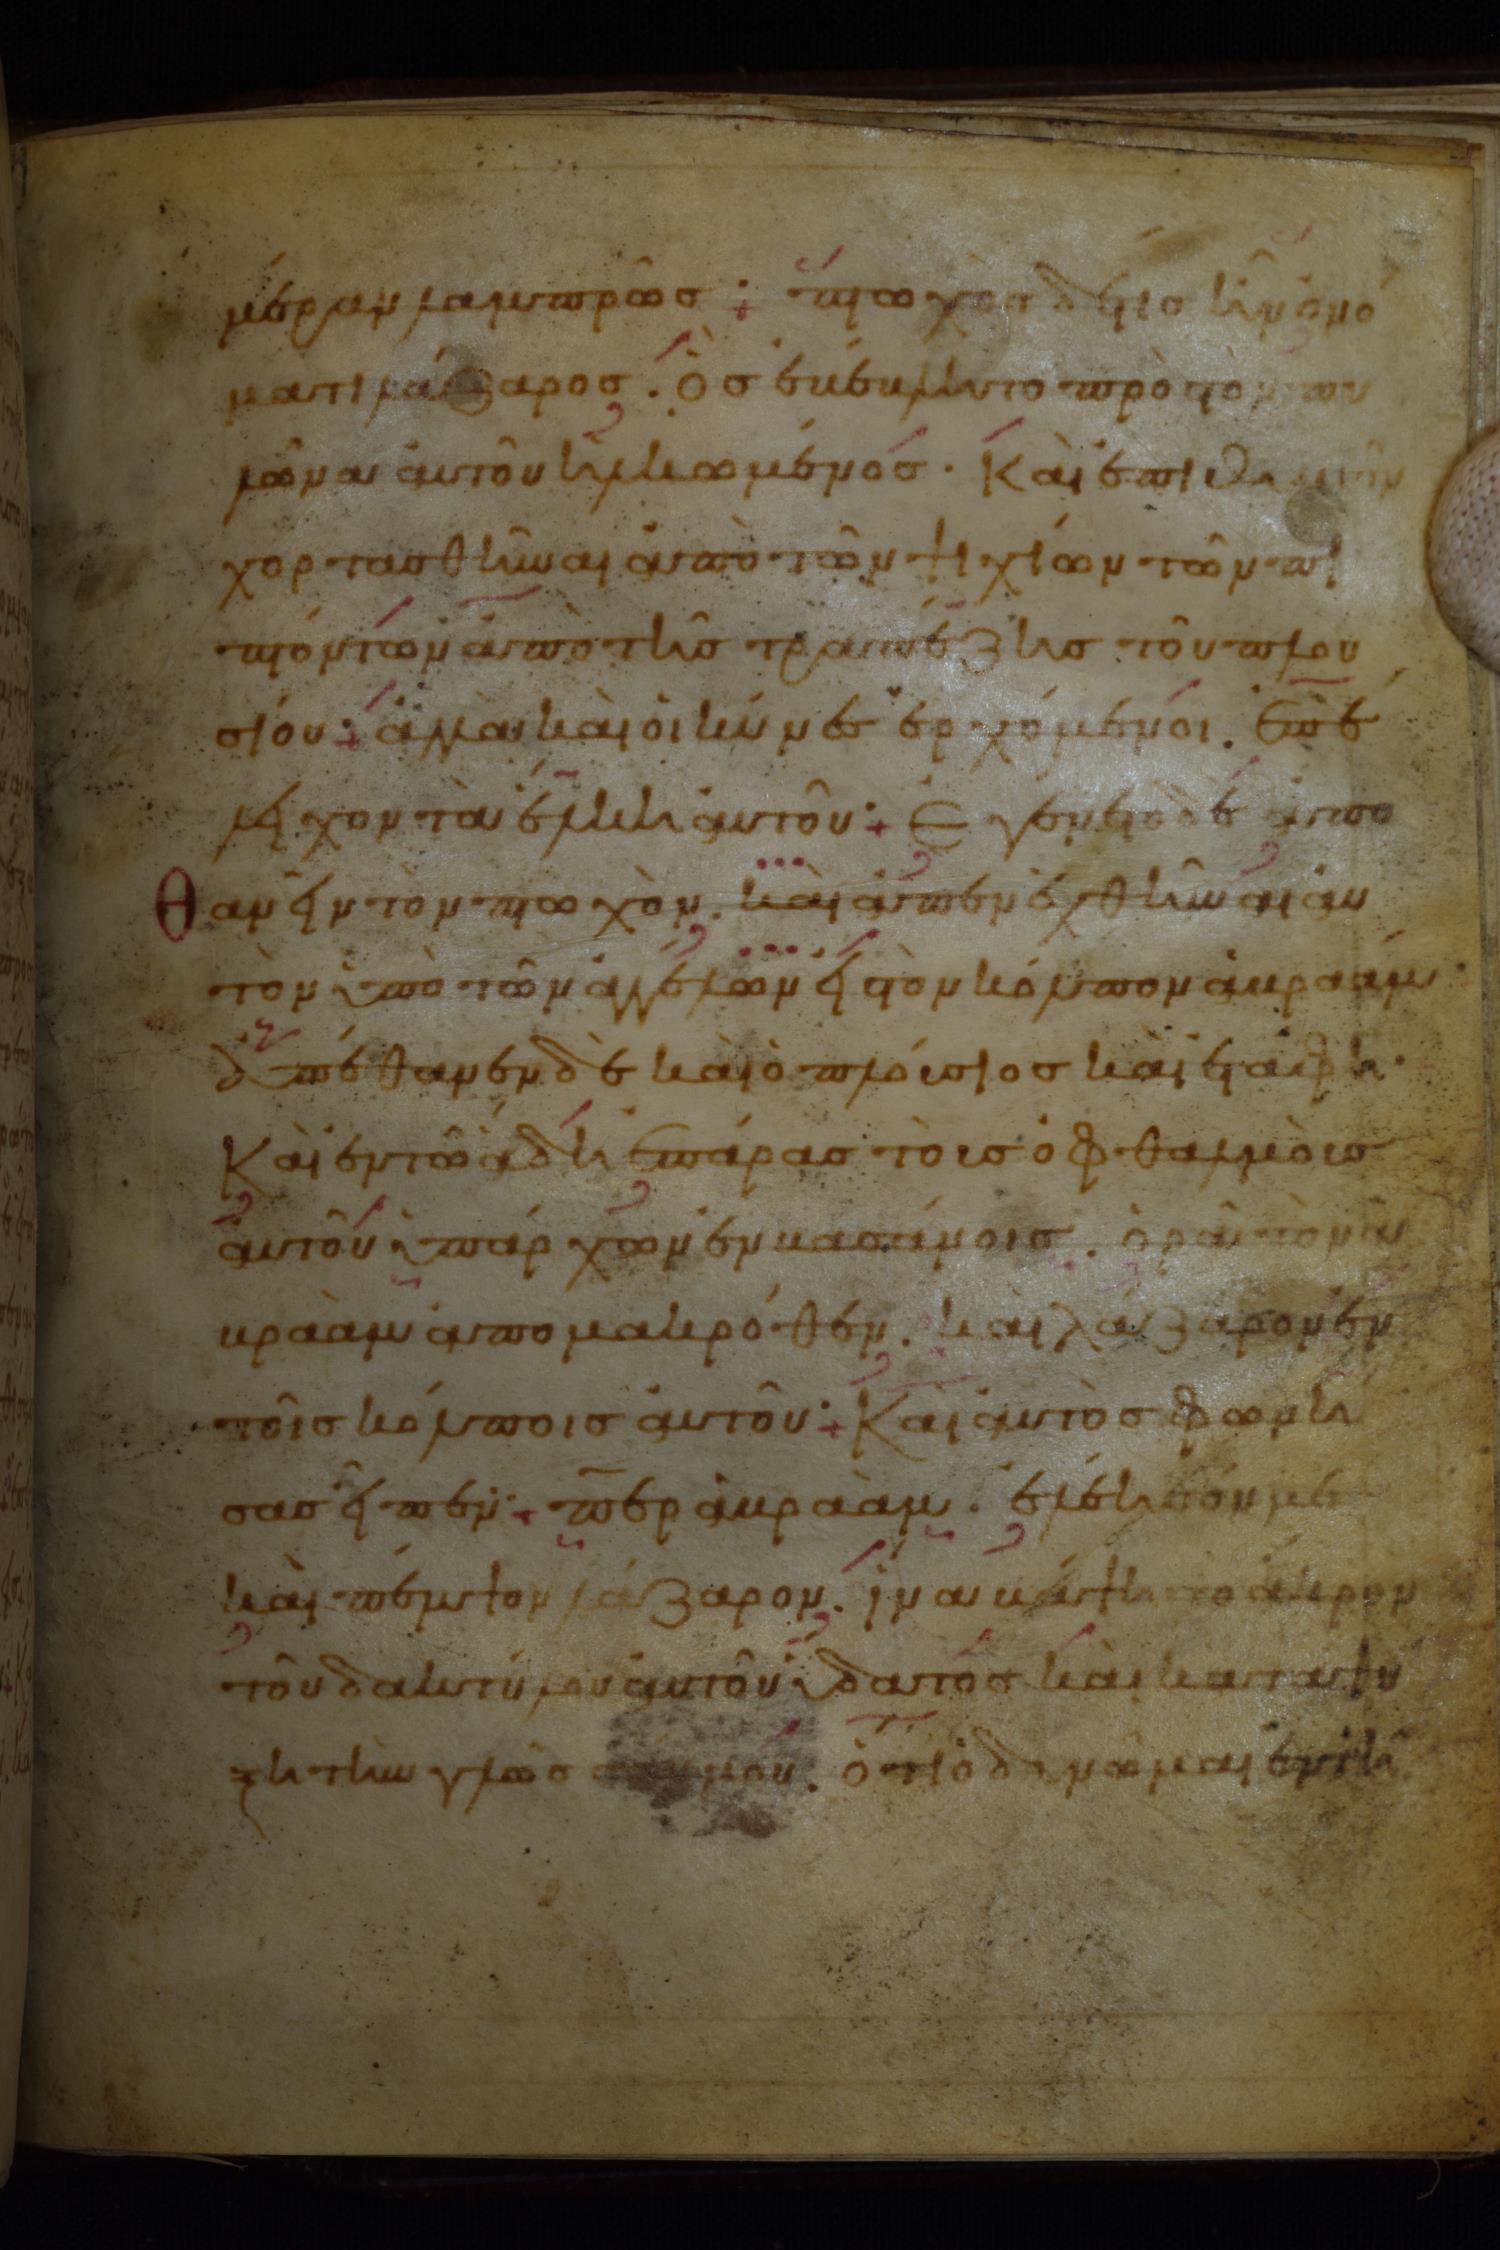 μέραν λαμπρῶσ· πτωχὸσ δέ τισ ἦν ὀνό
ματι λάζαροσ. ὃσ ἐβέβλητο πρὸσ τὸν πυ
λῶνα αὐτοῦ ἡλκωμένοσ. Καὶ ἐπιθυμῶν
χορτασθῆναι ἀπὸ τῶν ψιχίων τῶν πι
πτόντων ἀπὸ τῆσ τραπέζησ τοῦ πλου
σίου· ἀλλὰ καὶ οἱ κύνεσ ἐρχόμενοι. ἐπέ
λειχον τὰ ἕλκη αὐτοῦ· Ἐγένετο δὲ ἀπο
θανεῖν τὸν πτωχὸν. καὶ ἀπενεχθῆναι αὐ
τὸν ὑπὸ τῶν ἀγγέλων εἰσ τὸν κόλπον ἀβραάμ·
ἀπέθανεν δὲ καὶ ὁ πλούσιοσ καὶ ἐτάφη·
Καὶ ἐν τῶ ἅδη ἐπάρασ τοὺσ ὀφθαλμοὺσ
αὐτοῦ ὑπάρχων ἐν βασάνοισ. ὁρᾶ τὸν ἀ
βραὰμ ἀπὸ μακρόθεν. καὶ λάζαρον ἐν
τοῖσ κόλποισ αὐτοῦ· Καὶ αὐτὸσ φωνή
σασ εἶπεν· περ ἀβραὰμ. ἐλέησόν με
καὶ πέμψον λάζαρον. ἵνα βάψη τὸ ἄκρον
τοῦ δακτύλου αὐτοῦ ὕδατοσ καὶ καταψύ
ξη τὴν γλῶσσάν μου. ὅτι ὀδυνῶμαι ἐν τῆ